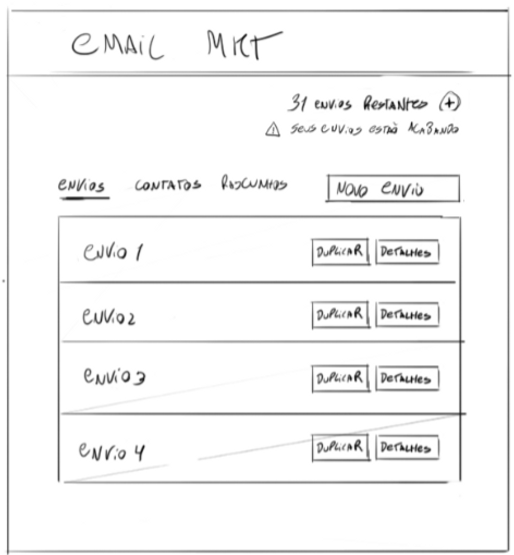 EMAIL MKT
31 ENVIOS RESTANTES (+)
SEUS ENVIOS ESTÃO ACABANDO
ENVIOS CONTATOS RASCUNHOS NOVO ENVIO
ENVIO 1 DUPLICAR DETALHES
ENVIO 2 DUPLICAR DETALHES
ENVIO 3 DUPLICAR DETALHES
ENVIO 4 DUPLICAR DETALHES